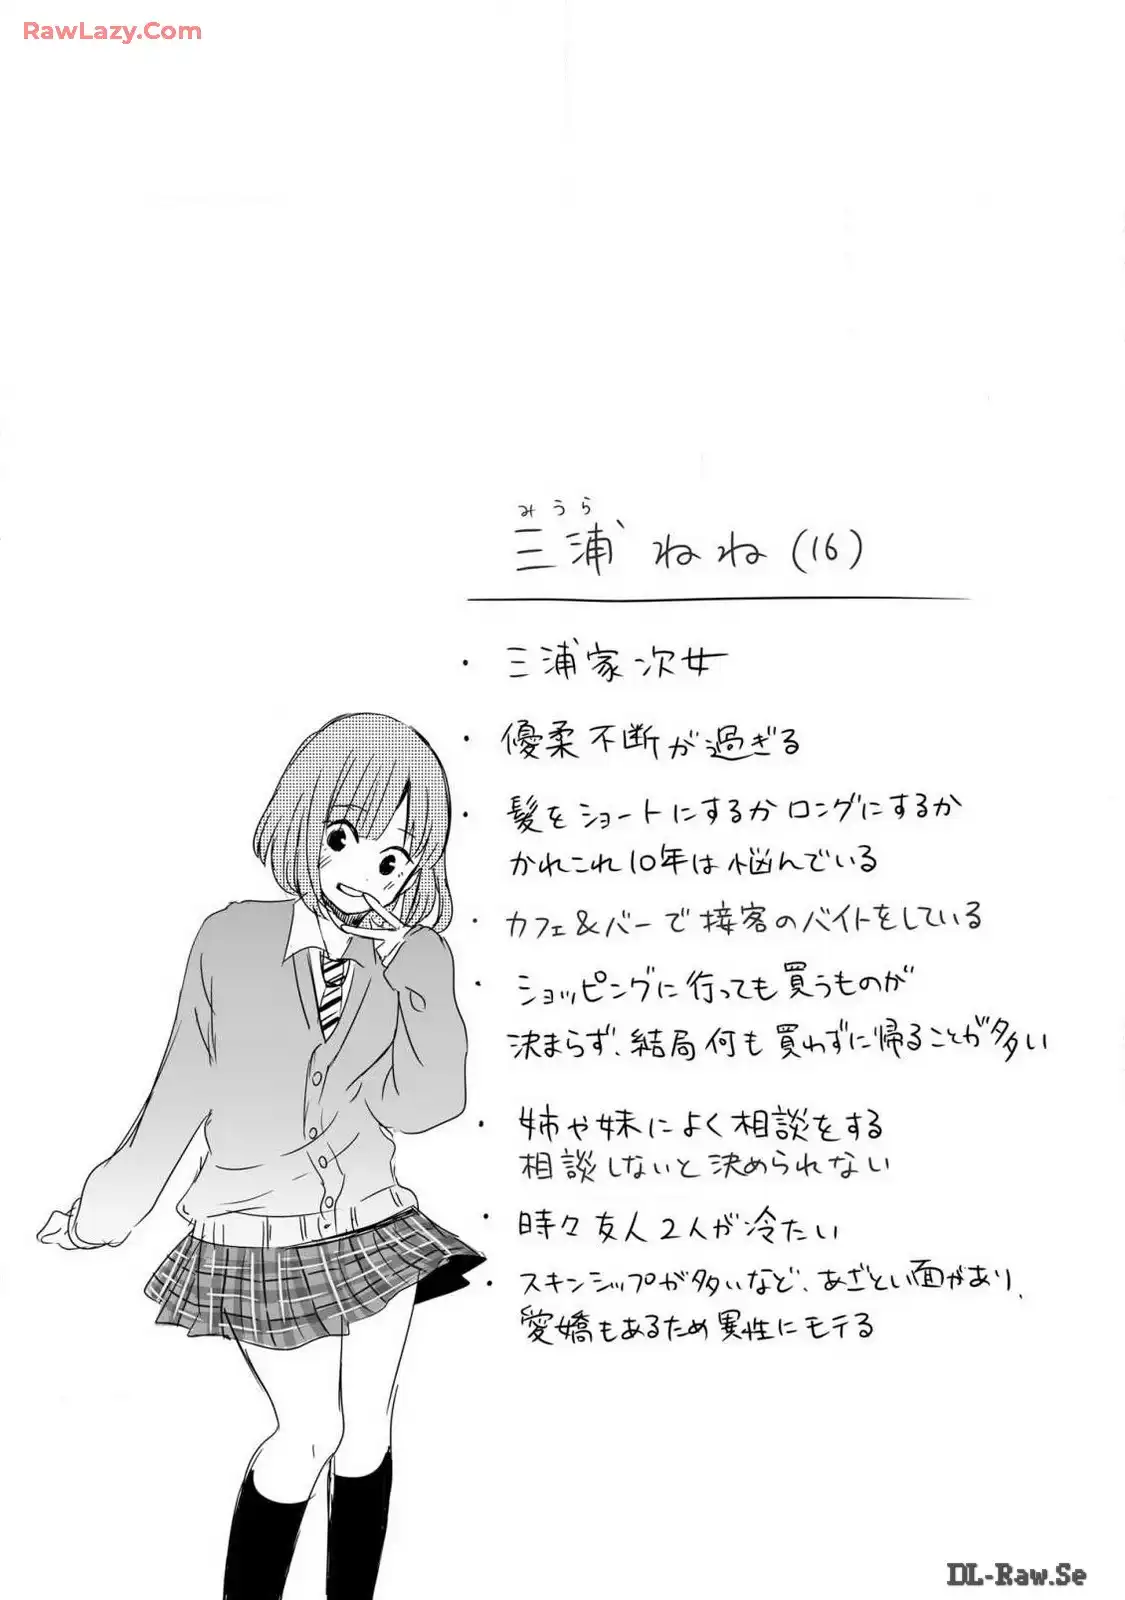 RawLazy.Com
みうら
三浦 ねね (16)
・三浦家次女
・優柔不断が過ぎる
・髪をショートにするかロングにするか
かれこれ10年は悩んでいる
・カフェ&バーで接客のバイトをしている
・ショッピングに行っても買うものが
決まらず、結局何も買わずに帰ることが多い
・姉や妹によく相談をする
相談しないと決められない
・時々友人2人が冷たい
・スキンシップが多いなど、あざとい面があり、
愛嬌もあるため異性にモテる
DL-Raw.Se